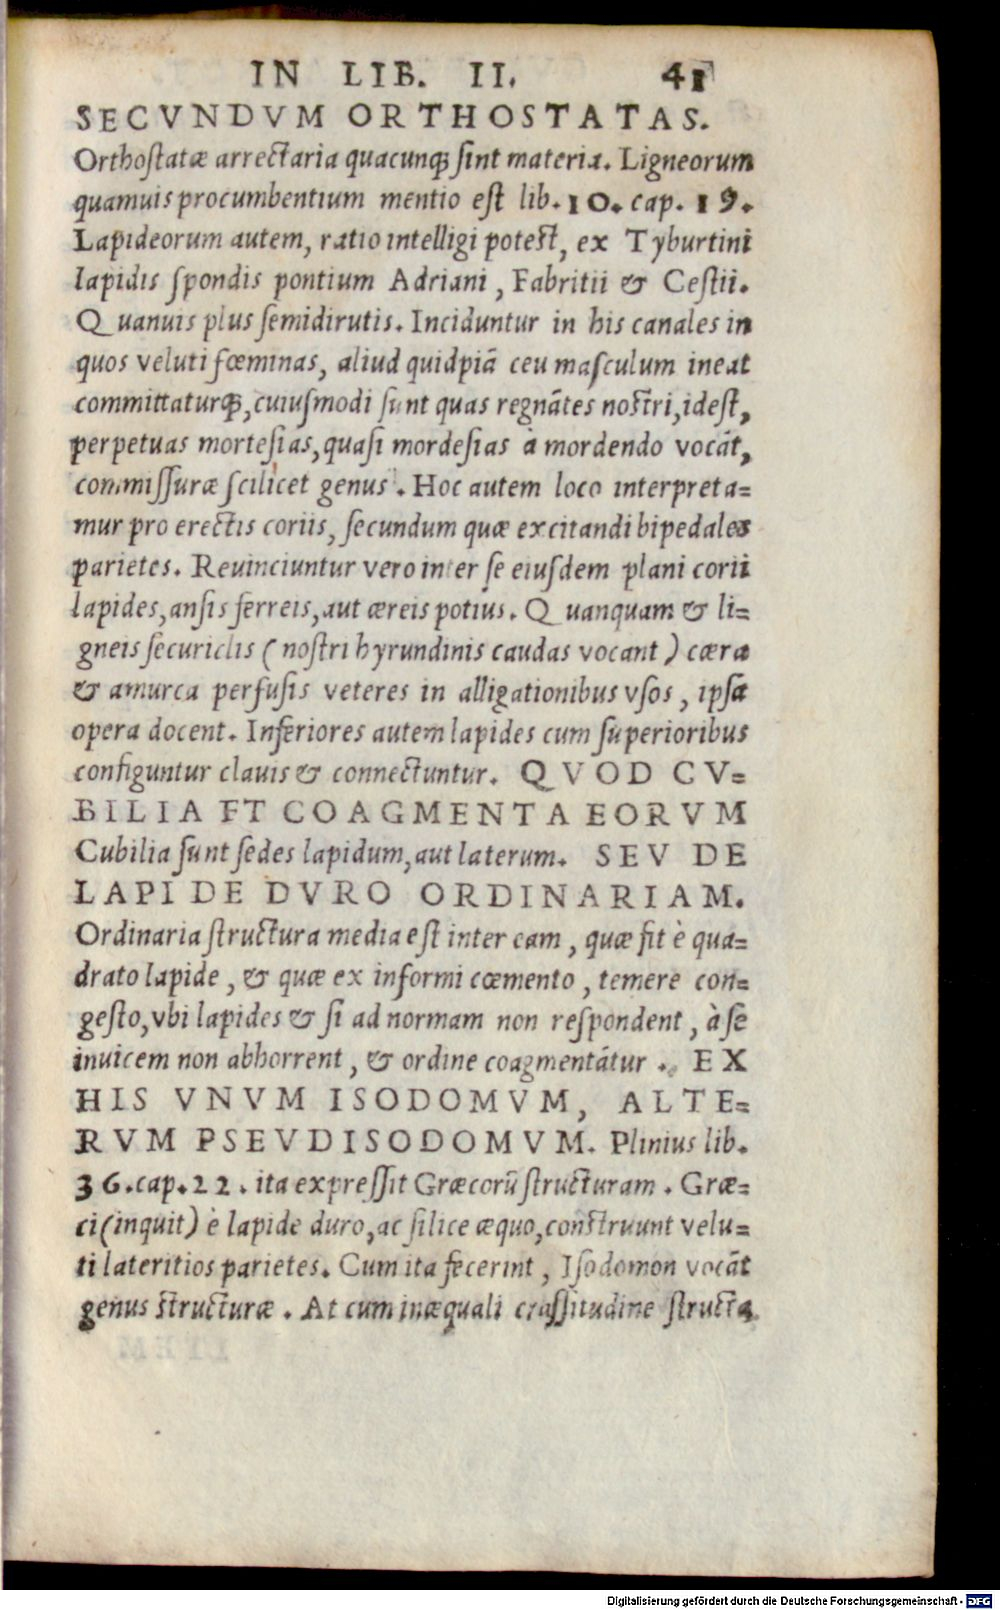 IN LIB. II. 41
SECVNDVM ORTHOSTATAS.
Orthostatæ arrectaria quacunq́; sint materia. Ligneorum
quamuis procumbentium mentio est lib. 10. cap. 19.
Lapideorum autem, ratio intelligi potest, ex Tyburtini
lapidis spondis pontium Adriani, Fabritii & Cestii.
Quanuis plus semidirutis. Inciduntur in his canales in
quos veluti fœminas, aliud quidpiã ceu masculum ineat
committaturq́;, cuiusmodi sunt quas regnãtes nostri, idest,
perpetuas mortesias, quasi mordesias à mordendo vocãt,
commissuræ scilicet genus. Hoc autem loco interpreta=
mur pro erectis coriis, secundum quæ excitandi bipedales
parietes. Reuinciuntur vero inter se eiusdem plani corii
lapides, ansis ferreis, aut æreis potius. Quanquam & li=
gneis securiclis (nostri hyrundinis caudas vocant) cæra
& amurca perfusis veteres in alligationibus vsos, ipsa
opera docent. Inferiores autem lapides cum superioribus
configuntur clauis & connectuntur. QVOD CV=
BILIA ET COAGMENTA EORVM
Cubilia sunt sedes lapidum, aut laterum. SEV DE
LAPIDE DVRO ORDINARIAM.
Ordinaria structura media est inter eam, quæ fit è qua=
drato lapide, & quæ ex informi cœmento, temere con=
gesto, vbi lapides & si ad normam non respondent, à se
inuicem non abhorrent, & ordine coagmentãtur. EX
HIS VNVM ISODOMVM, ALTE=
RVM PSEVDISODOMVM. Plinius lib.
36. cap. 22. ita expressit Græcorũ structuram. Græ=
ci (inquit) è lapide duro, ac silice æquo, construunt velu=
ti lateritios parietes. Cum ita fecerint, Isodomon vocãt
genus structuræ. At cum inæquali crassitudine structa
Digitalisierung gefördert durch die Deutsche Forschungsgemeinschaft - DFG